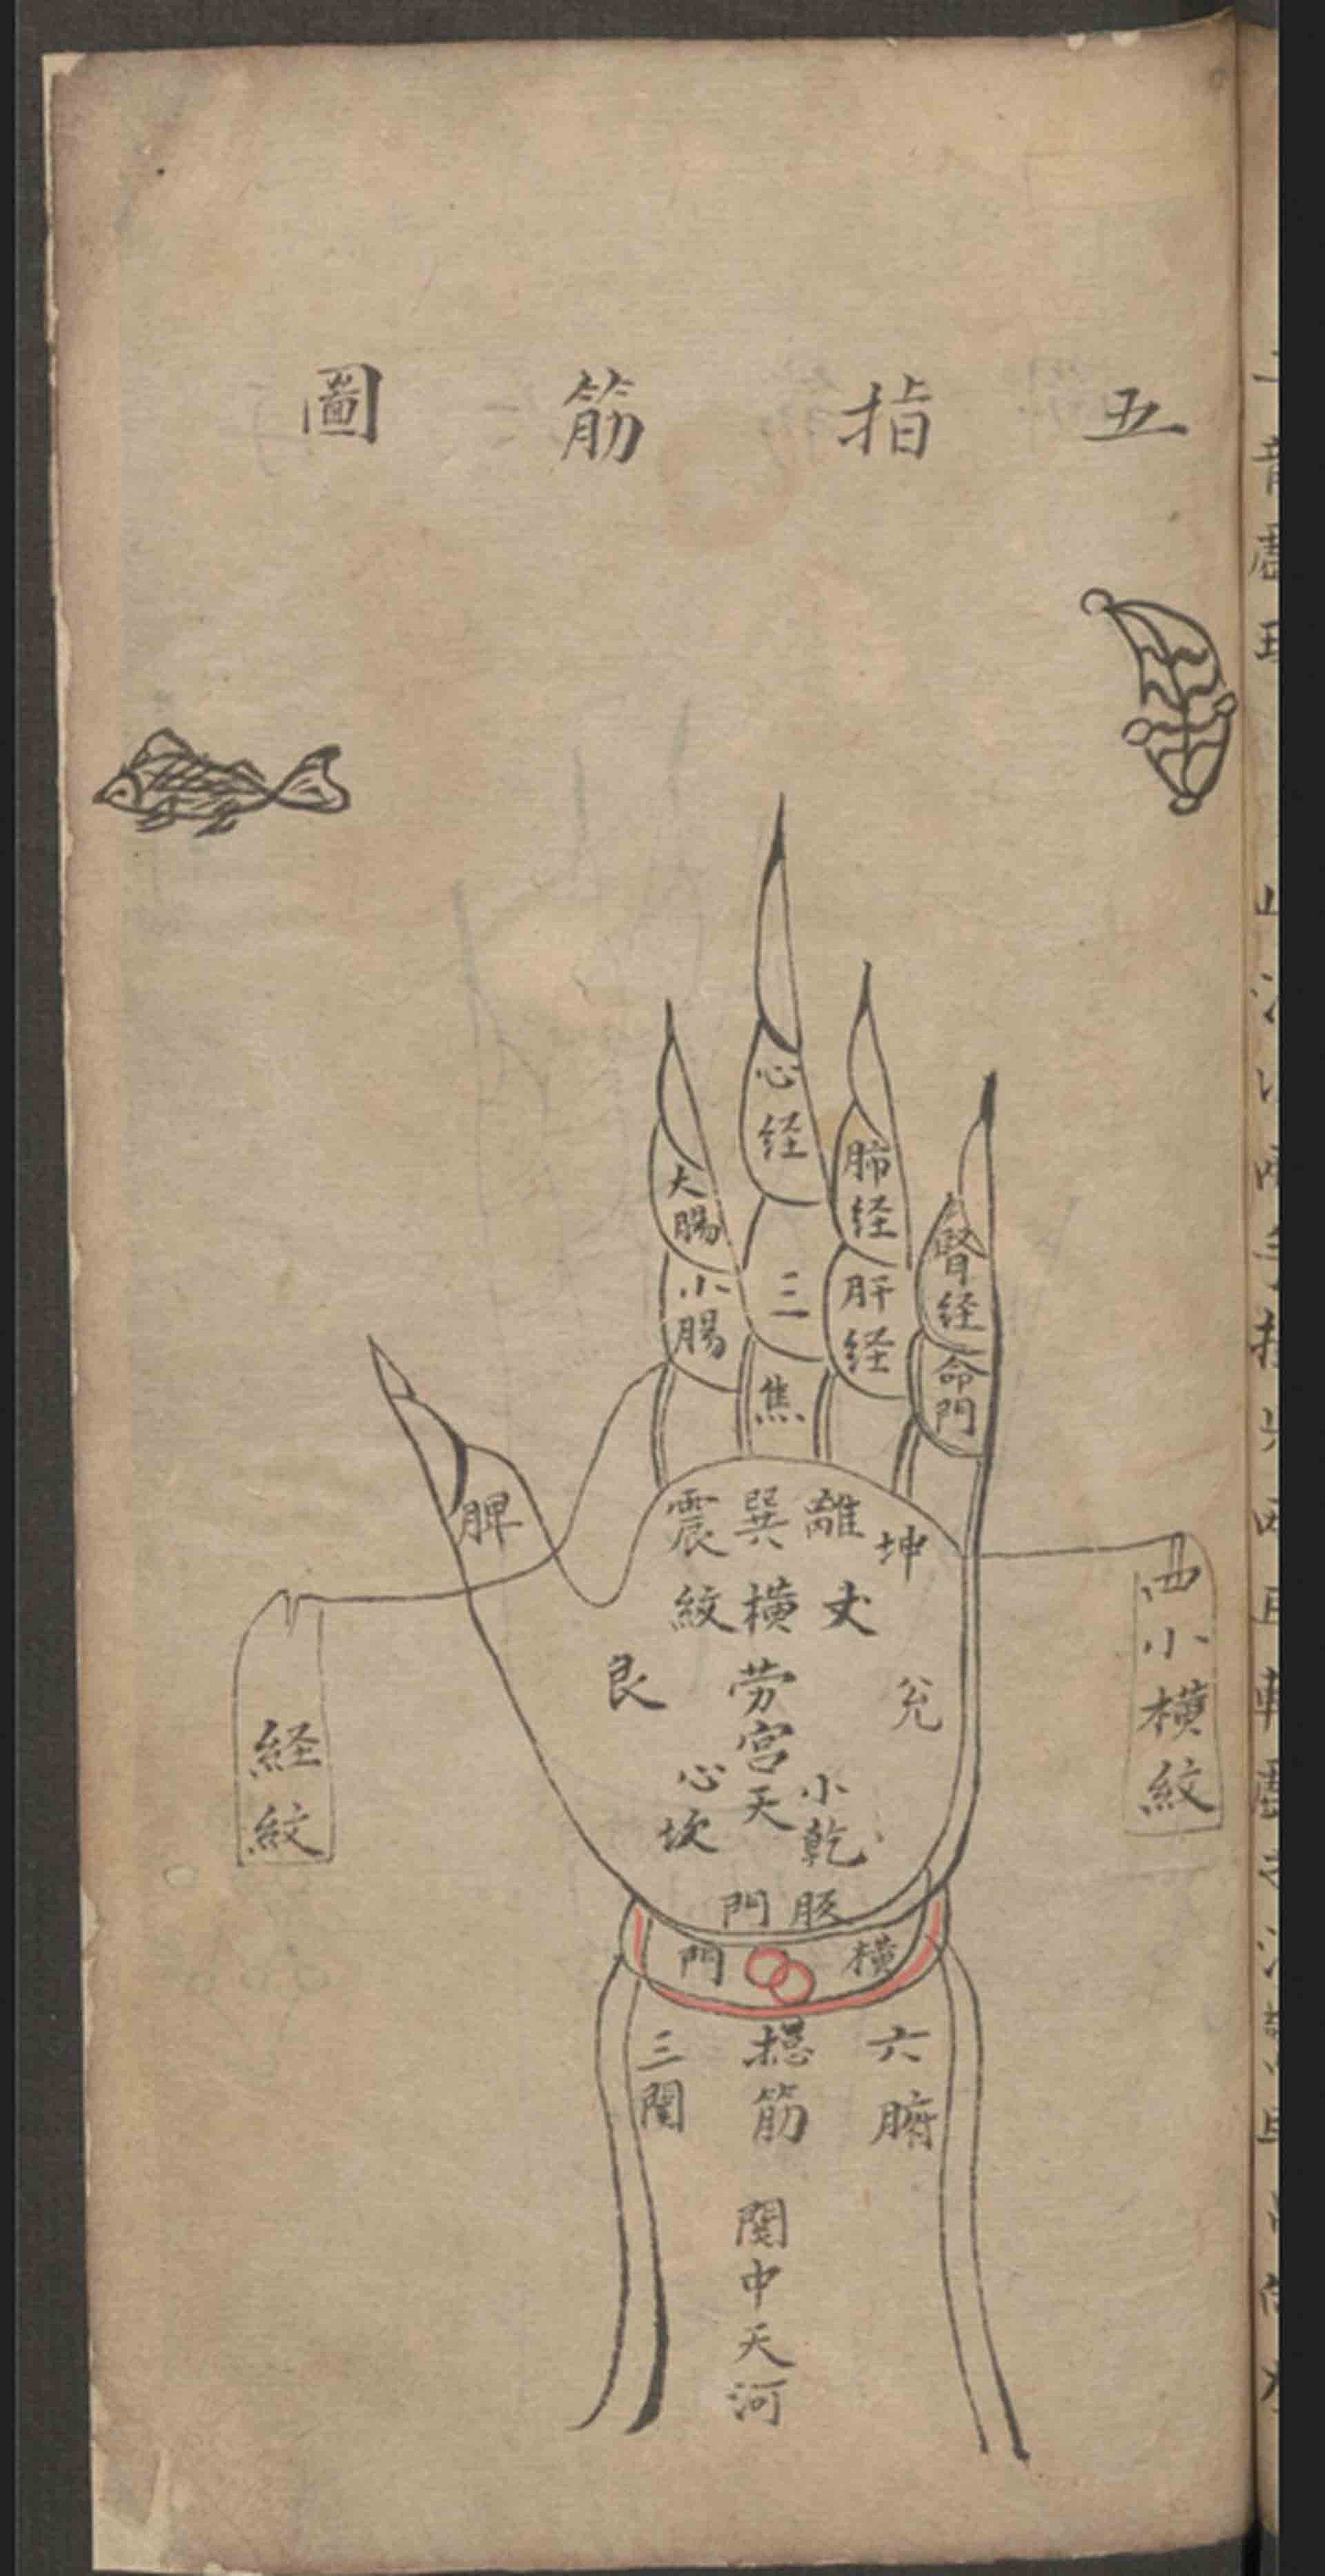 五指筋圖
心経
大腸
小腸
三焦
肺経
肝経
腎経
命門
脾
震巽離坤
紋横丈
艮
劳宫
兊
心天小
坎乾
門
門横
四小横紋
経紋
三関
揔筋
六腑
関中天河